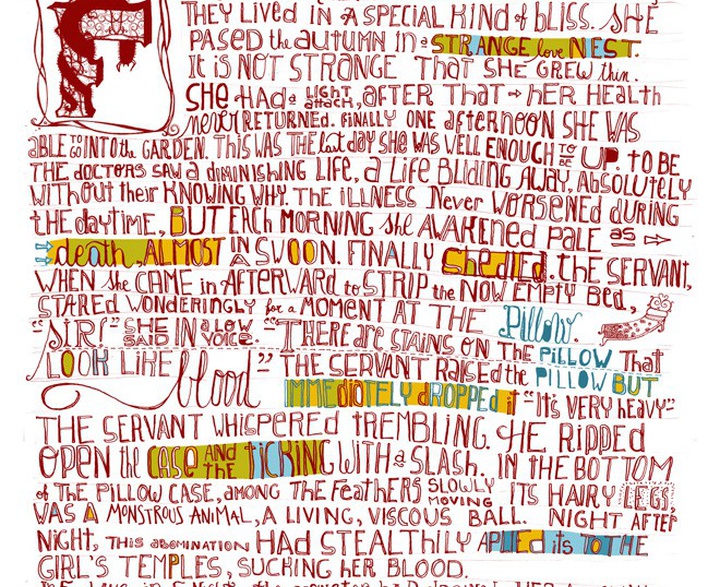 F
THEY LIVED IN A SPECIAL KIND of BLISS. SHE
PASED the AUTUMN IN a STRANGE love NEST.
It is NOT STRANGE That SHE GREW thin.
SHE HAD a LIGHT attach, AFTER THAT HER HEALTH
never RETURNED. FINALLY ONE afternoon SHE WAS
ABLE TO GO INTO the GARDEN. THIS WAS THE last day SHE WAS WELL ENOUGH TO BE UP. TO BE
THE DOCTORS SAW a DIMINISHING LIFE, a LIFE BLIDING AWAY, ABSOLUTELY
WITHOUT their KNOWING WHY. THE ILLNESS Never WORSENED DURING
the daytime, BUT EACH MORNING she AWAKENED PALE as
death, ALMOST IN A SWOON. FINALLY She dIEd. the SERVANT,
WHEN she CAME in AFTERWARD to STRIP the NOW EMPTY Bed,
STARED WONDERINGLY for a MOMENT AT THE Pillow.
"SIR!" SHE SAID IN a LOW VOICE. "THERE are STAINS ON THE PILLOW That
LOOK LIKE blood" THE SERVANT RAISED the PILLOW BUT
IMMEdiATELY dROPPEd it "It's VERY heavy"
THE SERVANT WHISPERED TREMBLING. HE RIPPED
OPEN the CASE AND THE TICKING WITH a SLASH. IN THE BOTTOM
of THE PILLOW CASE, AMONG THE FEATHERS SLOWLY MOVING ITS HAIRY LEGS,
WAS A MONSTROUS ANIMAL, A LIVING, VISCOUS BALL. NIGHT AFTER
NIGHT, THIS ABOMINATION HAD STEALTHILY APLIED its TO THE
GIRL'S TEMPLES, SUCKING HER BLOOD.